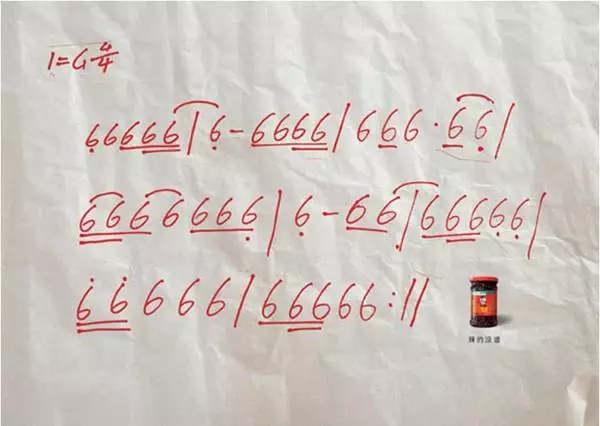 1=G 4/4
66666|6-6666|666·66|
6666666|6-66|66666|
66666|66666:||
辣的没谱